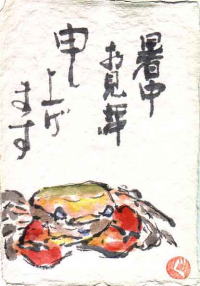 暑中
お見舞
申し
上げ
ます